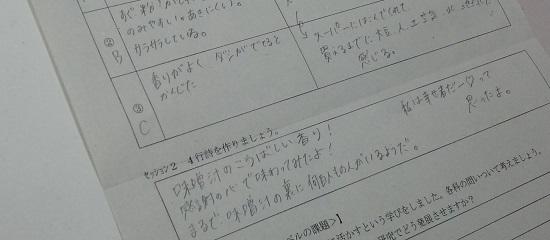 のみやすい。あきにくい。
カラカラしている。
② B
スーパーにはこんでくれて
買えるまでに、大豆、人、工
感じる。
香りがよく ダシがでてると
かんじた
③
C
セッション2 4行詩を作りましょう。
味噌汁のこうばしい香り!
感謝の心で味わってみたよ!
まるで、味噌汁の裏に何百人もの人がいるようだ。
私は幸せ者だー♡って
思ったよ。
ベルの課題>】
に活かすという学びをしました。各科の問いついて考えましょう。
研究でどう発展させますか?